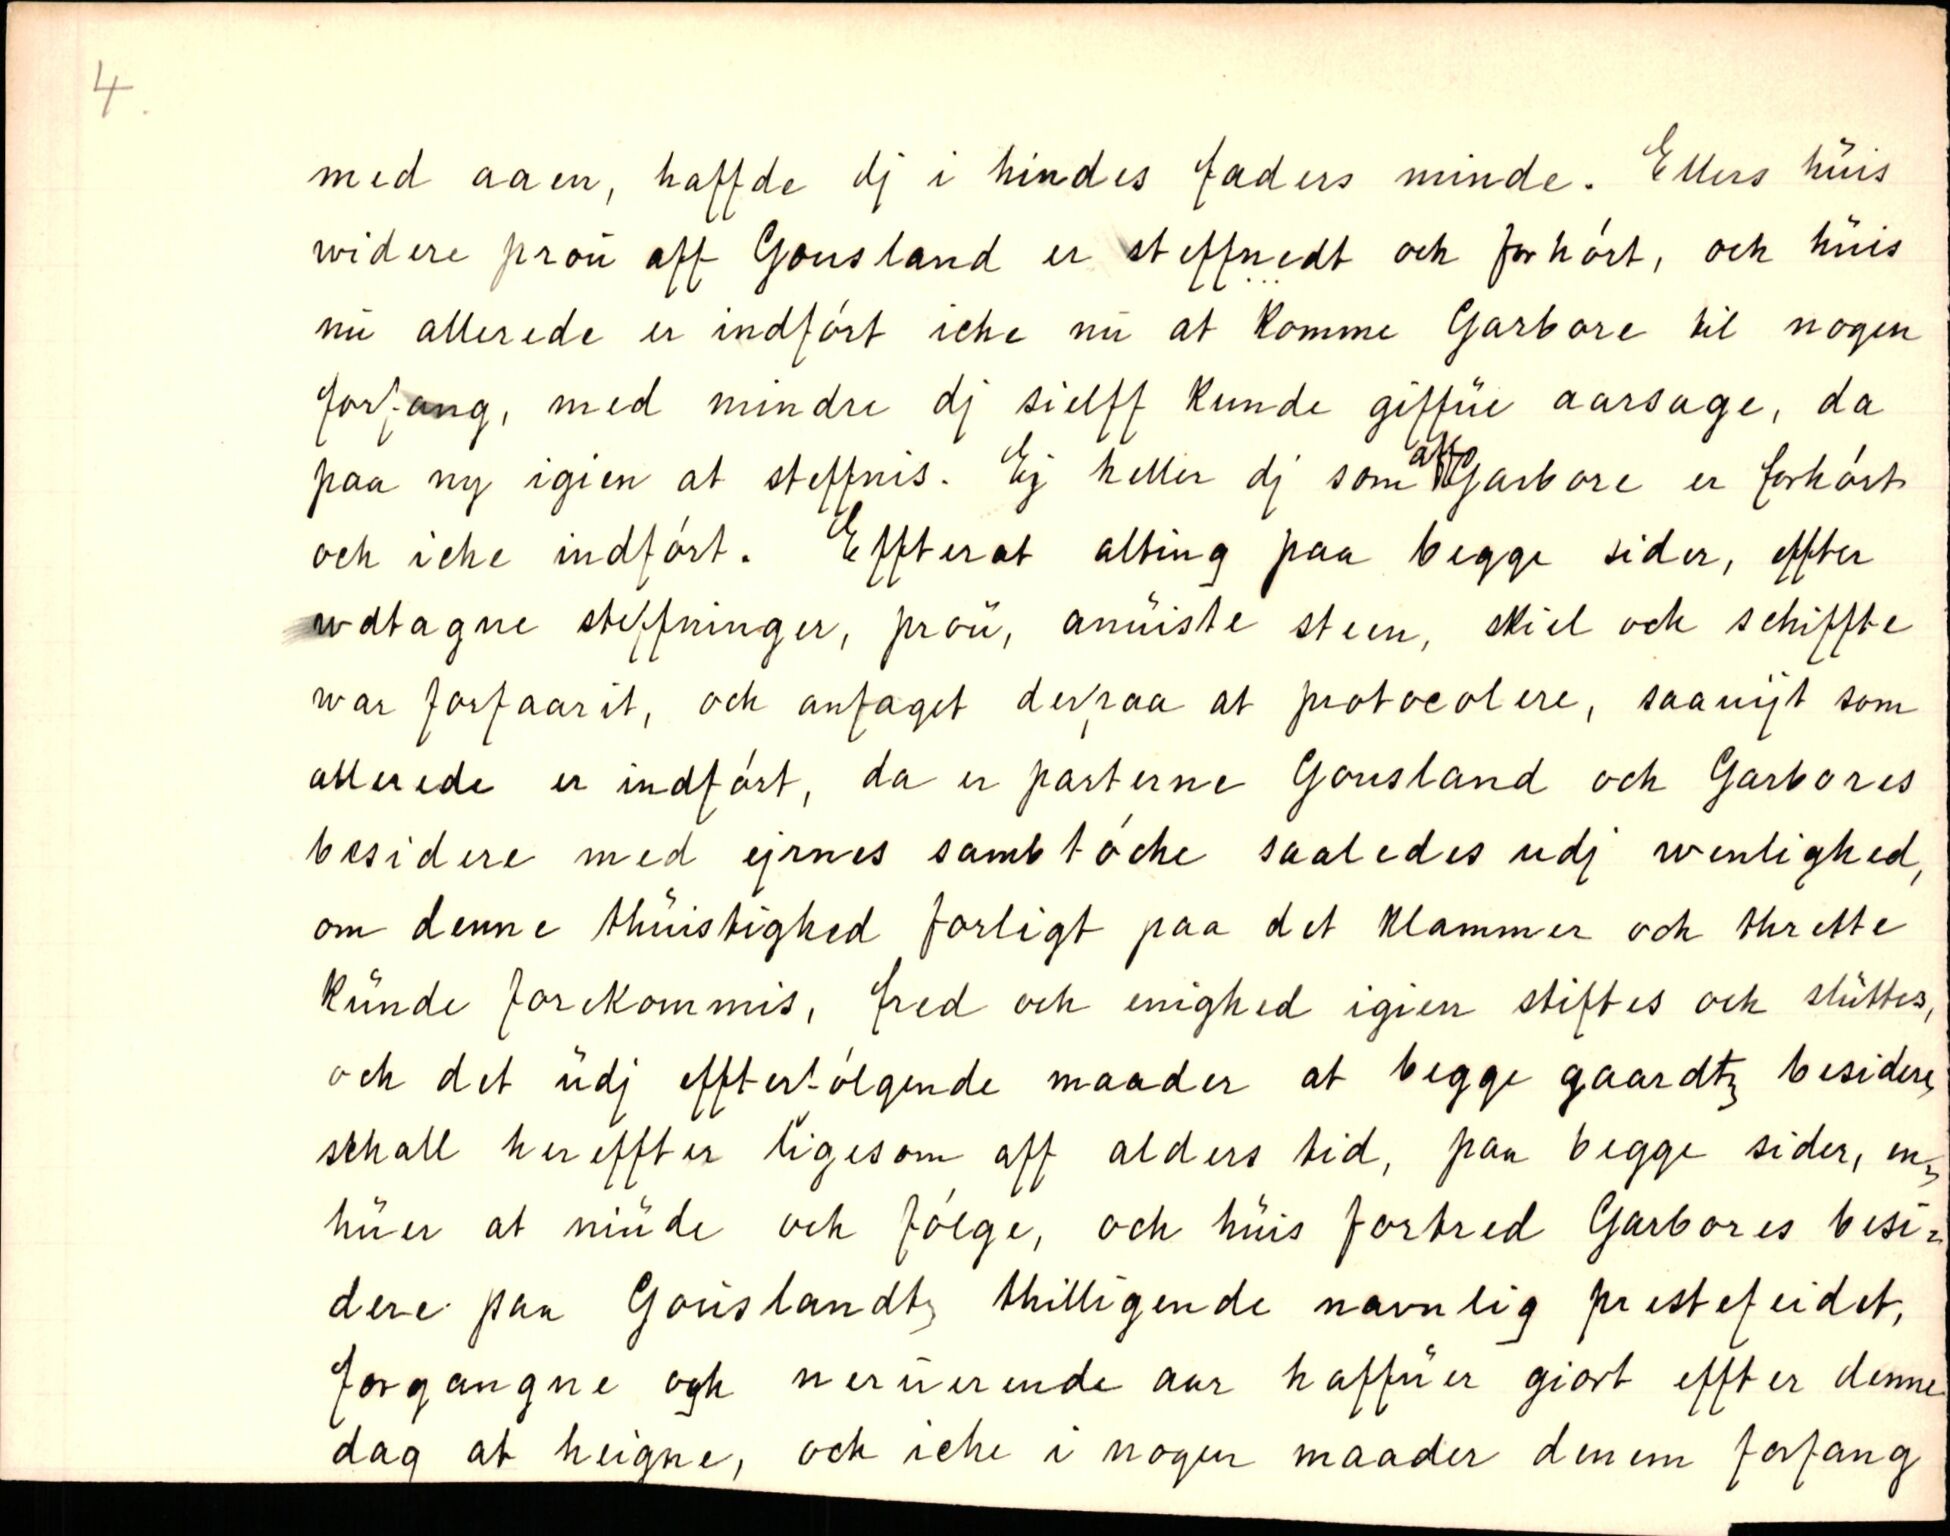 4.
med aaen, haffde dj i hindes faders minde. Ellers hüis
widere proü aff Gousland er steffnedt och forhórt, och hüis
nü allerede er indfórt iche nü at komme Garbore til nogen
forfang, med mindre dj sielff kunde giffüe aarsage, da
paa ny igien at steffnis. Ej heller dj som aff Garbore er forhórt
och iche indfórt. Effterat alting paa begge sider, effter
wdtagne steffninger, proü, anüiste steen, skiel och schiffte
war forfaarit, och anfaget derpaa at protocolere, saauijt som
allerede er indfórt, da er parterne Gousland och Garbores
besidere med ejrnes sambtóche saaledes udj wenlighed,
om denne thüistighed forligt paa det klammer och thrette
künde forekommis, fred och enighed igien stiftes och slüttes,
och det üdj effterfólgende maader at begge gaardtz besidere,
schall hereffter ligesom aff alders tid, paa begge sider, en-
hüer at niüde och fólge, och hüis fortred Garbores besi-
dere paa Goüslandtz thilligende navnlig prestefeidet,
forgangne och nerüerende aar haffüer giort effter denne
dag at heigne, och iche i nogen maader denem forfang